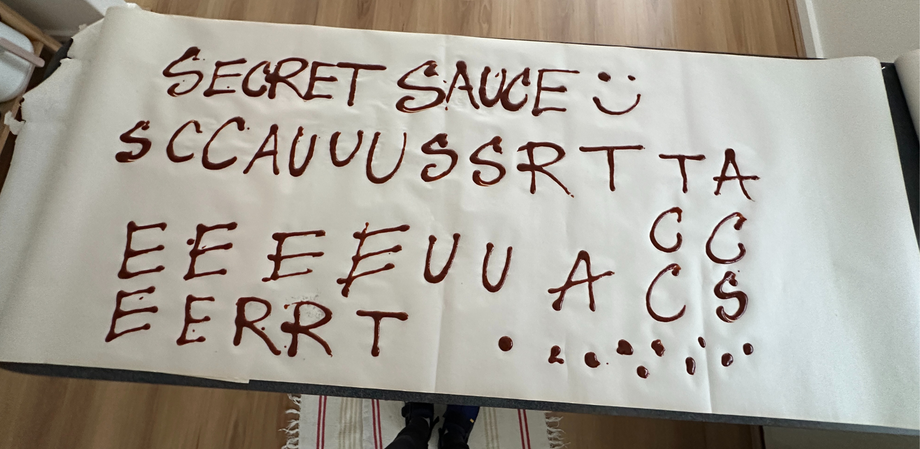 SECRET SAUCE :)
SCCAUUUSSRT TA
C C
EEEEUUA C S
EERRT